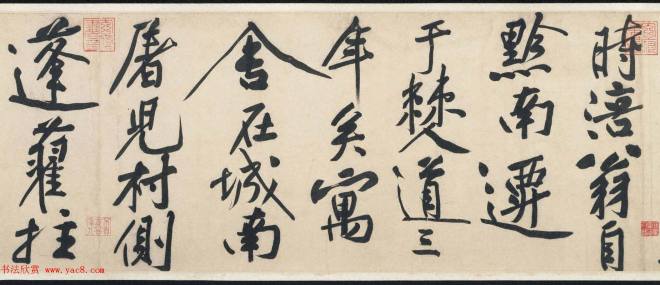 時涪翁自
黔南遷
于僰道三
年矣寓
舍在城南
屠兒村側
蓬藋拄
书法欣赏 www.yac8.com